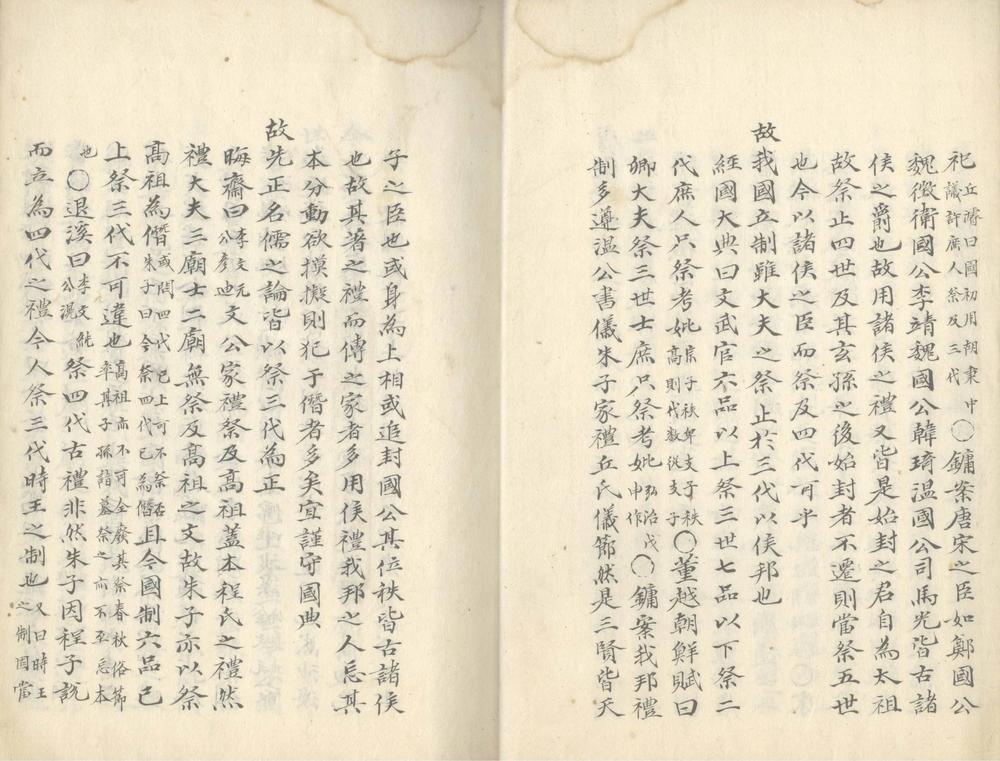 祀丘濬曰國初用朝
議許庶人祭及三代〇鏞案唐宋之臣如鄭國公
魏徵衛國公李靖魏國公韓琦溫國公司馬光皆古諸
侯之爵也故用諸侯之禮又皆是始封之君自為太祖
故祭止四世及其玄孫之後始封者不遷則當祭五世
也今以諸侯之臣而祭及四代可乎
故我國立制雖大夫之祭止於三代以侯邦也
經國大典曰文武官六品以上祭三世七品以下祭二
代庶人只祭考妣宗子秩卑支子秩
高則代數從支子〇董越朝鮮賦曰
卿大夫祭三世士庶只祭考妣弘治戊
申作〇鏞案我邦禮
制多遵溫公書儀朱子家禮丘氏儀節然是三賢皆天
子之臣也或身為上相或追封國公其位秩皆古諸侯
也故其著之禮而傳之家者多用侯禮我邦之人忘其
本分動欲摸擬則犯于僭者多矣宜謹守國典
故先正名儒之論皆以祭三代為正
晦齋曰李文元
公彥迪文公家禮祭及高祖蓋本程氏之禮然
禮大夫三廟士二廟無祭及高祖之文故朱子亦以祭
高祖為僭或問四代已上可不祭否
朱子曰今祭四代已為僭且今國制六品已
上祭三代不可違也高祖亦不可全廢其祭春秋俗節
率其子孫詣墓祭之亦不至忘本
也〇退溪曰李文純
公滉祭四代古禮非然朱子因程子說
而立為四代之禮今人祭三代時王之制也又曰時王
之制固當